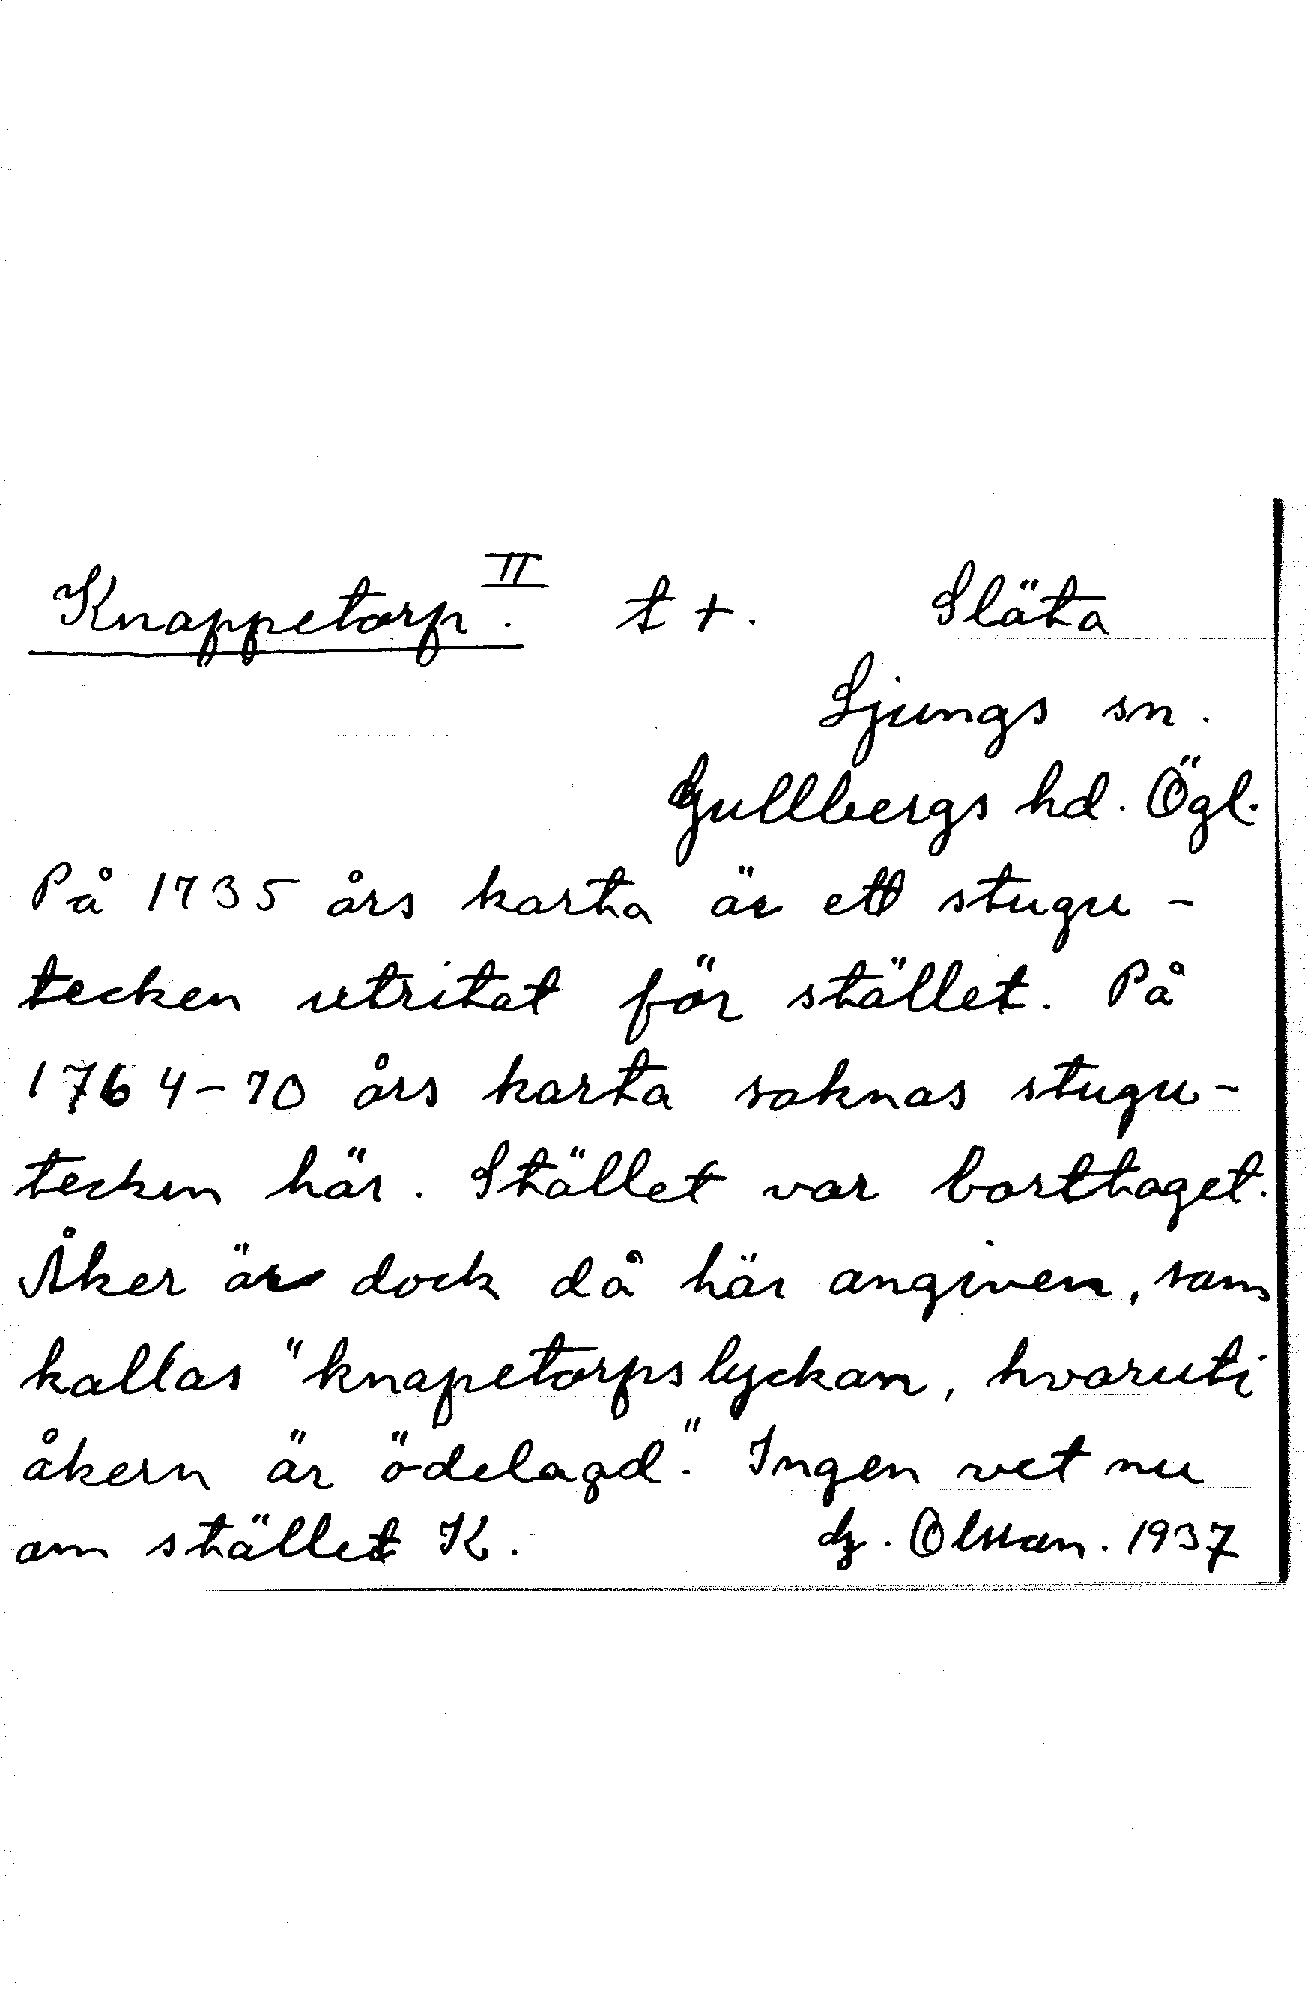 Knappetorp II. t +. Släta
Ljungs sn.
Gullbergs hd. Ögl.
På 1735 års karta är ett stugu-
tecken utritat för stället. På
1764-70 års karta saknas stugu-
tecken här. Stället var borttaget.
Åker är dock då här angiven, som
kallas "knapetorpslyckan, hvaruti
åkern är ödelagd." Ingen vet nu
om stället K. G. Olsson. 1937